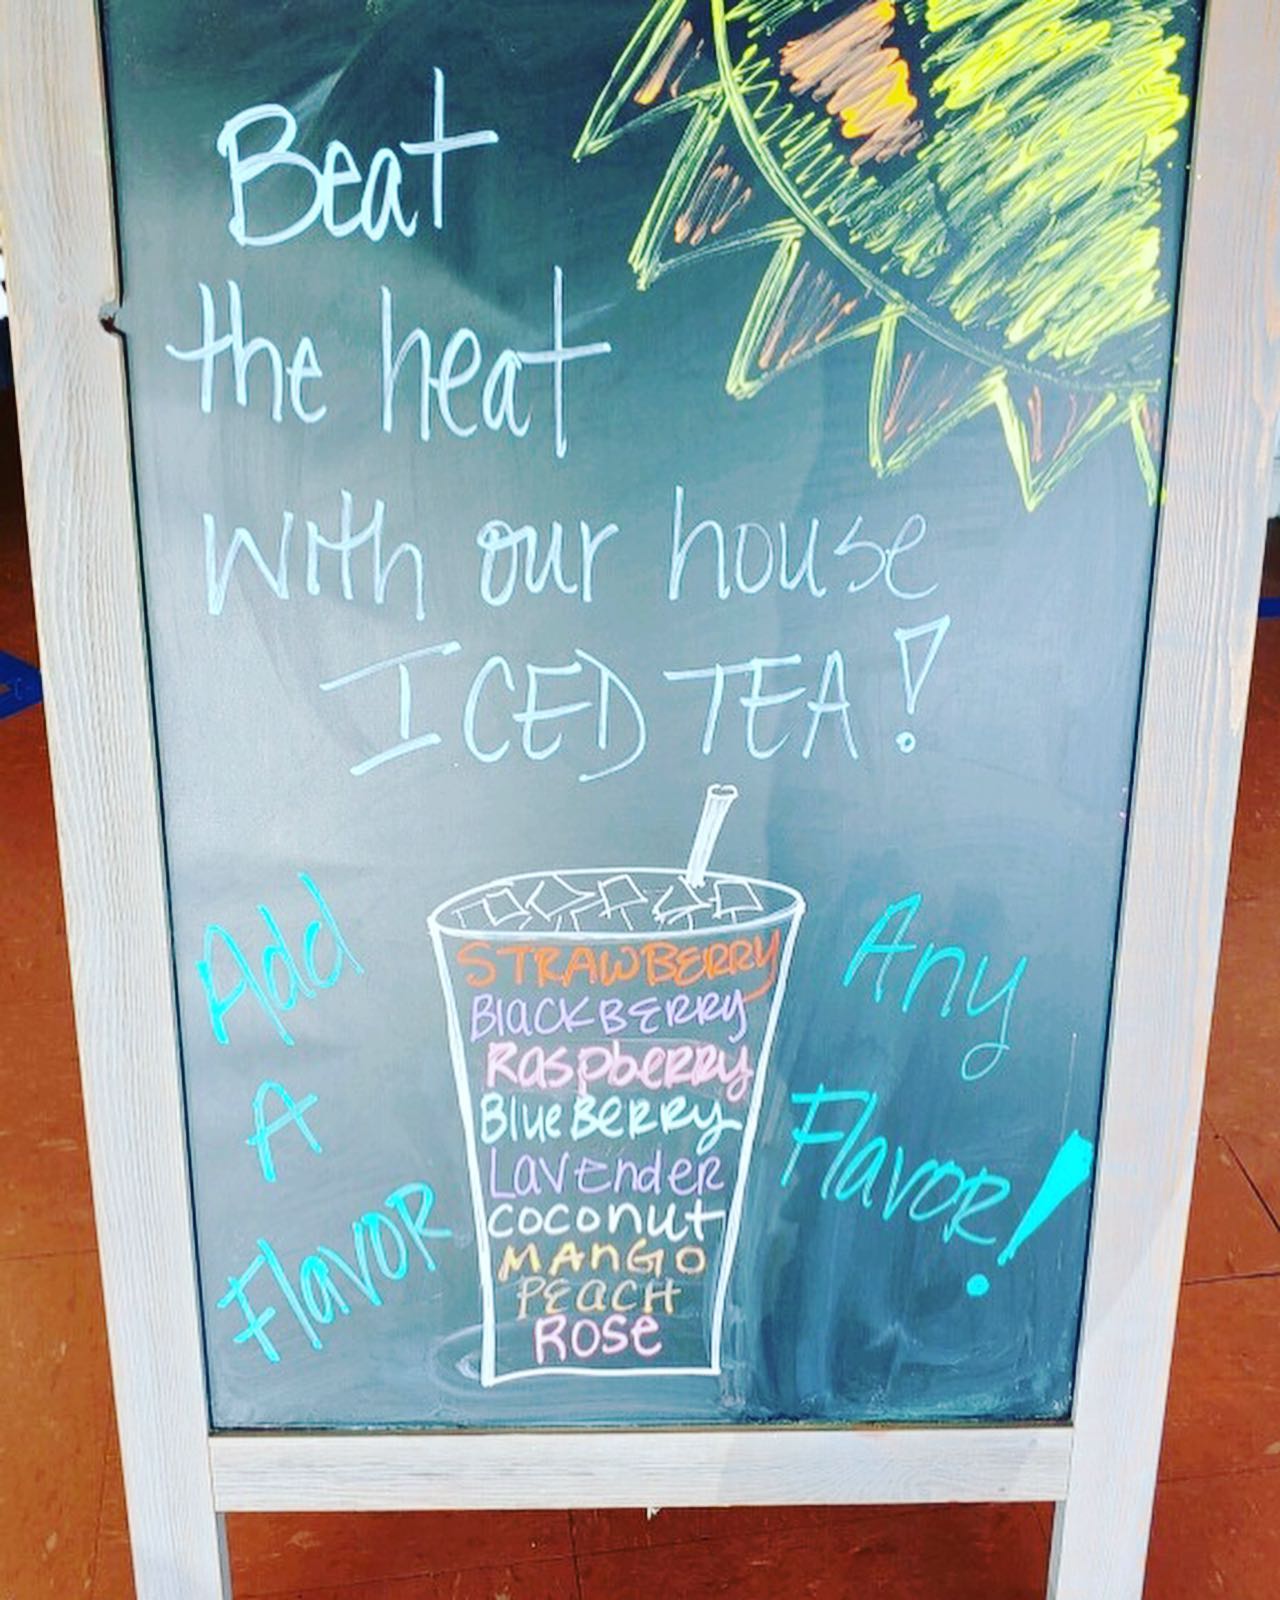 Beat
the heat
with our house
ICED TEA!
Add
A
Flavor
STRAWBERRY
BlackBERRY
Raspberry
BlueBERRY
Lavender
coconut
MAnGO
PEACH
Rose
Any
Flavor!